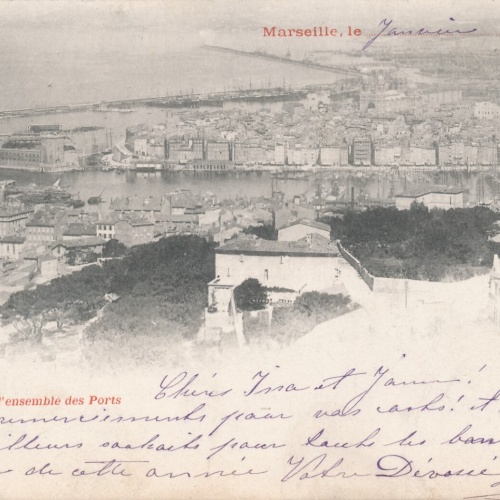 Marseille, le Janvier
l'ensemble des Ports
Chéres Issa et Janne!
remerciements pour vos carts! et
illeurs souhaits pour touts les
de cette année Votre Dévoué